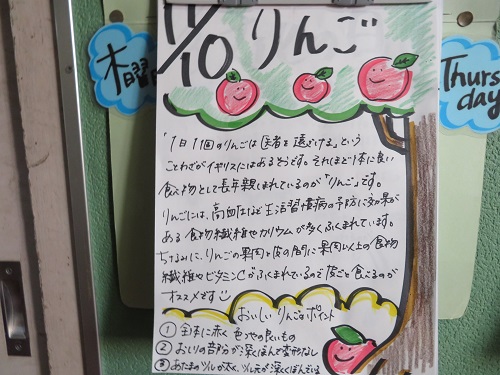 11/10 りんご
木曜
Thurs
day
「1日1個のりんごは医者を遠ざける」という
ことわざがイギリスにはあるそうです。それほど体に良い
食べ物として長年親しまれているのが「りんご」です。
りんごには、高血圧など生活習慣病の予防に効果が
ある食物繊維やカリウムが多くふくまれています。
ちなみに、りんごの果肉と皮の間に果肉以上の食物
繊維やビタミンCがふくまれているので皮ごと食べるのが
オススメです
おいしいりんごのポイント
① 全体に赤く色つやの良いもの
② おしりの部分が深くくぼんで変形なし
③ あたまのツルが太く、ツル元が深くくぼんでいる